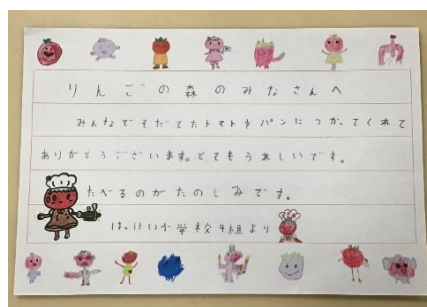 りんごの森のみなさんへ
みんなでそだてたトマトをパンにつかってくれて
ありがとうございます。とてもうれしいです。
たべるのがたのしみです。
小学校4組より